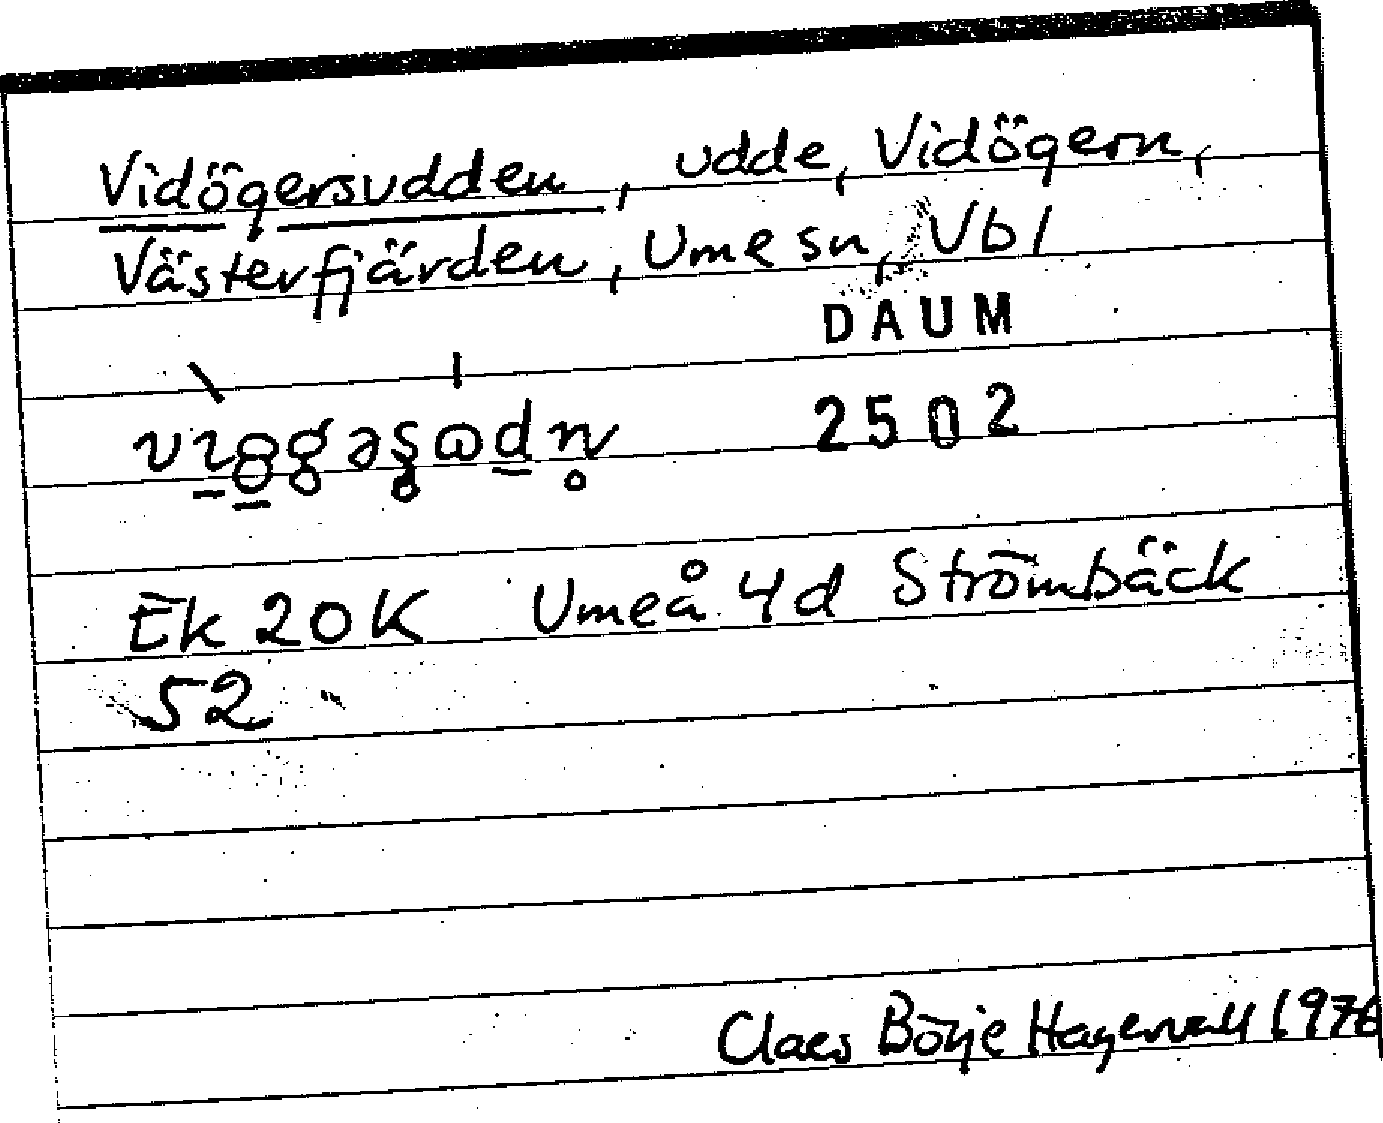 Vidögersudden, udde, Vidögern,
Västerfjärden, Ume sn, Vbl
DAUM
2502
Ek 20K Umeå 4d Strömbäck
52
Claes Börje Hagervall 1976